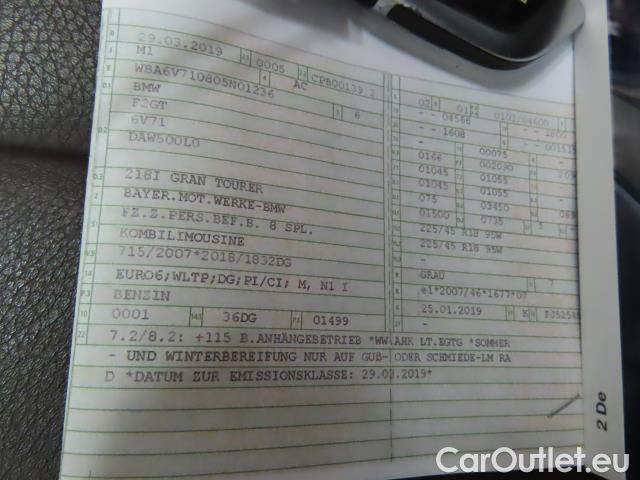 29.03.2019 0005 CPB00139
M1 AC
WBA6V710805N01236
BMW 6
F2GT
6V71
DAW500L0
218I GRAN TOURER
BAYER.MOT.WERKE-BMW
FZ.Z.PERS.BEF.B. 8 SPL.
KOMBILIMOUSINE
715/2007*2018/1832DG
EURO6;WLTP;DG;PI/CI; M, N1 I
BENZIN
0001 36DG 01499
04568
1608
0166 00075
01045 002090
01045 01055
075 01055
01500 03450
225/45 R18 95W 0735
225/45 R18 95W
GRAU 7
e1*2007/46*1677*07
25.01.2019 K
7.2/8.2: +115 B.ANHÄNGEBETRIEB *WW.AHK LT.EGTG *SOMMER
- UND WINTERBEREIFUNG NUR AUF GUß- ODER SCHMIEDE-LM RA
D *DATUM ZUR EMISSIONSKLASSE: 29.03.2019*
2 De
CarOutlet.eu